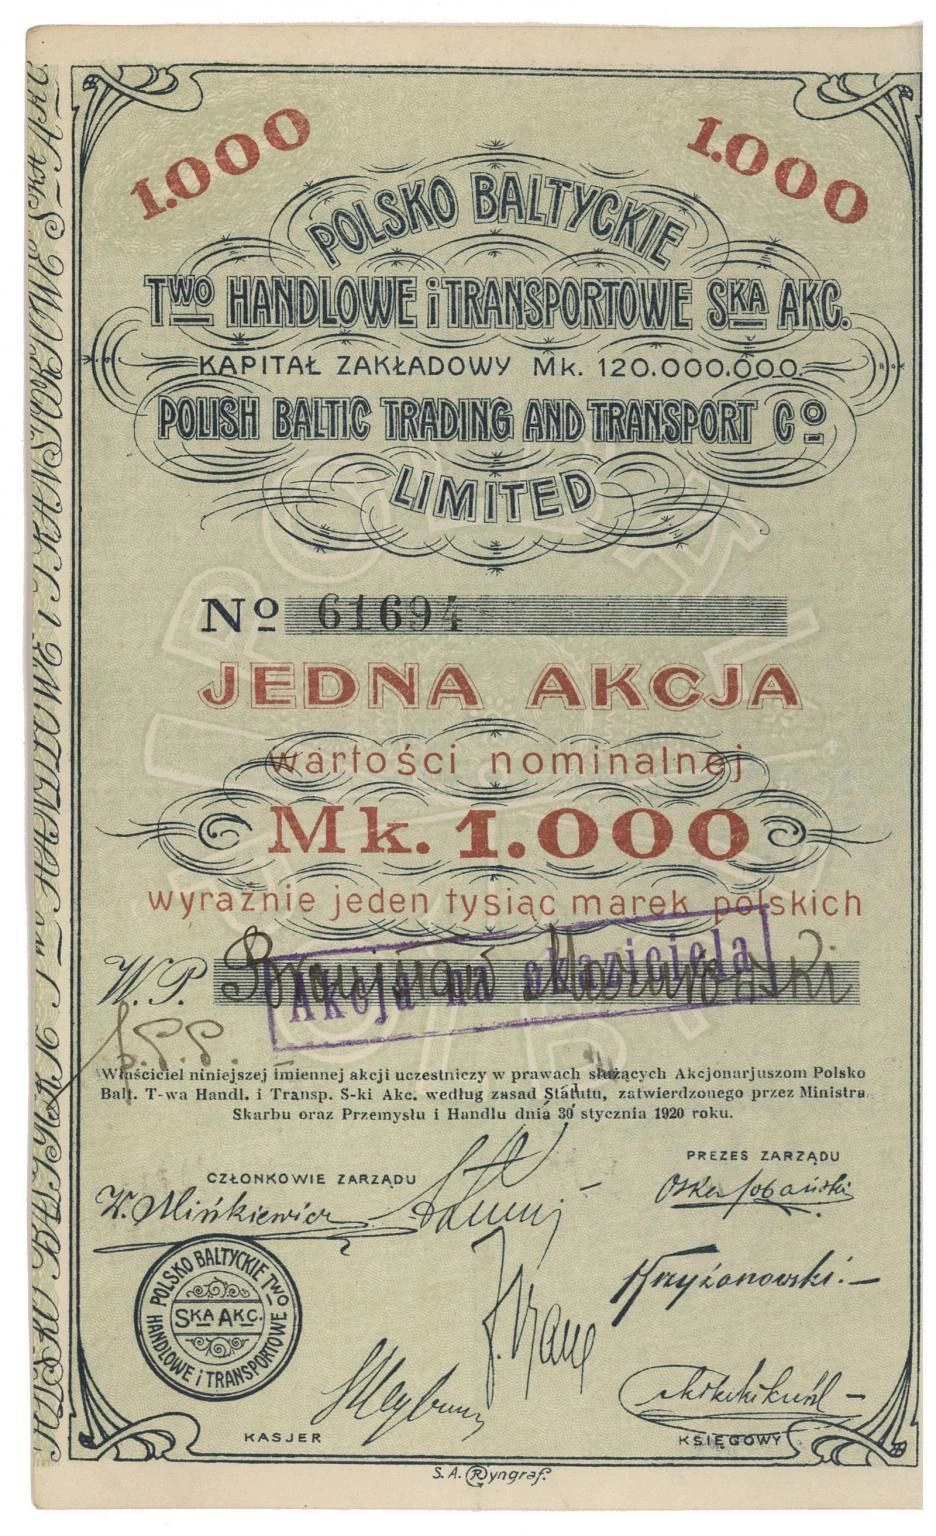 1.000
1.000
POLSKO BALTYCKIE
TWO HANDLOWE i TRANSPORTOWE SKA AKC.
KAPITAŁ ZAKŁADOWY Mk. 120.000.000.
POLISH BALTIC TRADING AND TRANSPORT CO
LIMITED
No 61694
JEDNA AKCJA
wartości nominalnej
Mk. 1.000
wyraźnie jeden tysiąc marek polskich
W.P.
Akcja na okaziciela
Właściciel niniejszej imiennej akcji uczestniczy w prawach służących Akcjonarjuszom Polsko
Balt. T-wa Handl. i Transp. S-ki Akc. według zasad Statutu, zatwierdzonego przez Ministra
Skarbu oraz Przemysłu i Handlu dnia 30 stycznia 1920 roku.
CZŁONKOWIE ZARZĄDU
PREZES ZARZĄDU
W. Mińkiewicz
Krzyżanowski.
POLSKO BALTYCKIE TWO
HANDLOWE i TRANSPORTOWE
SKA AKC.
KASJER
KSIĘGOWY
S. A. Ryngraf.